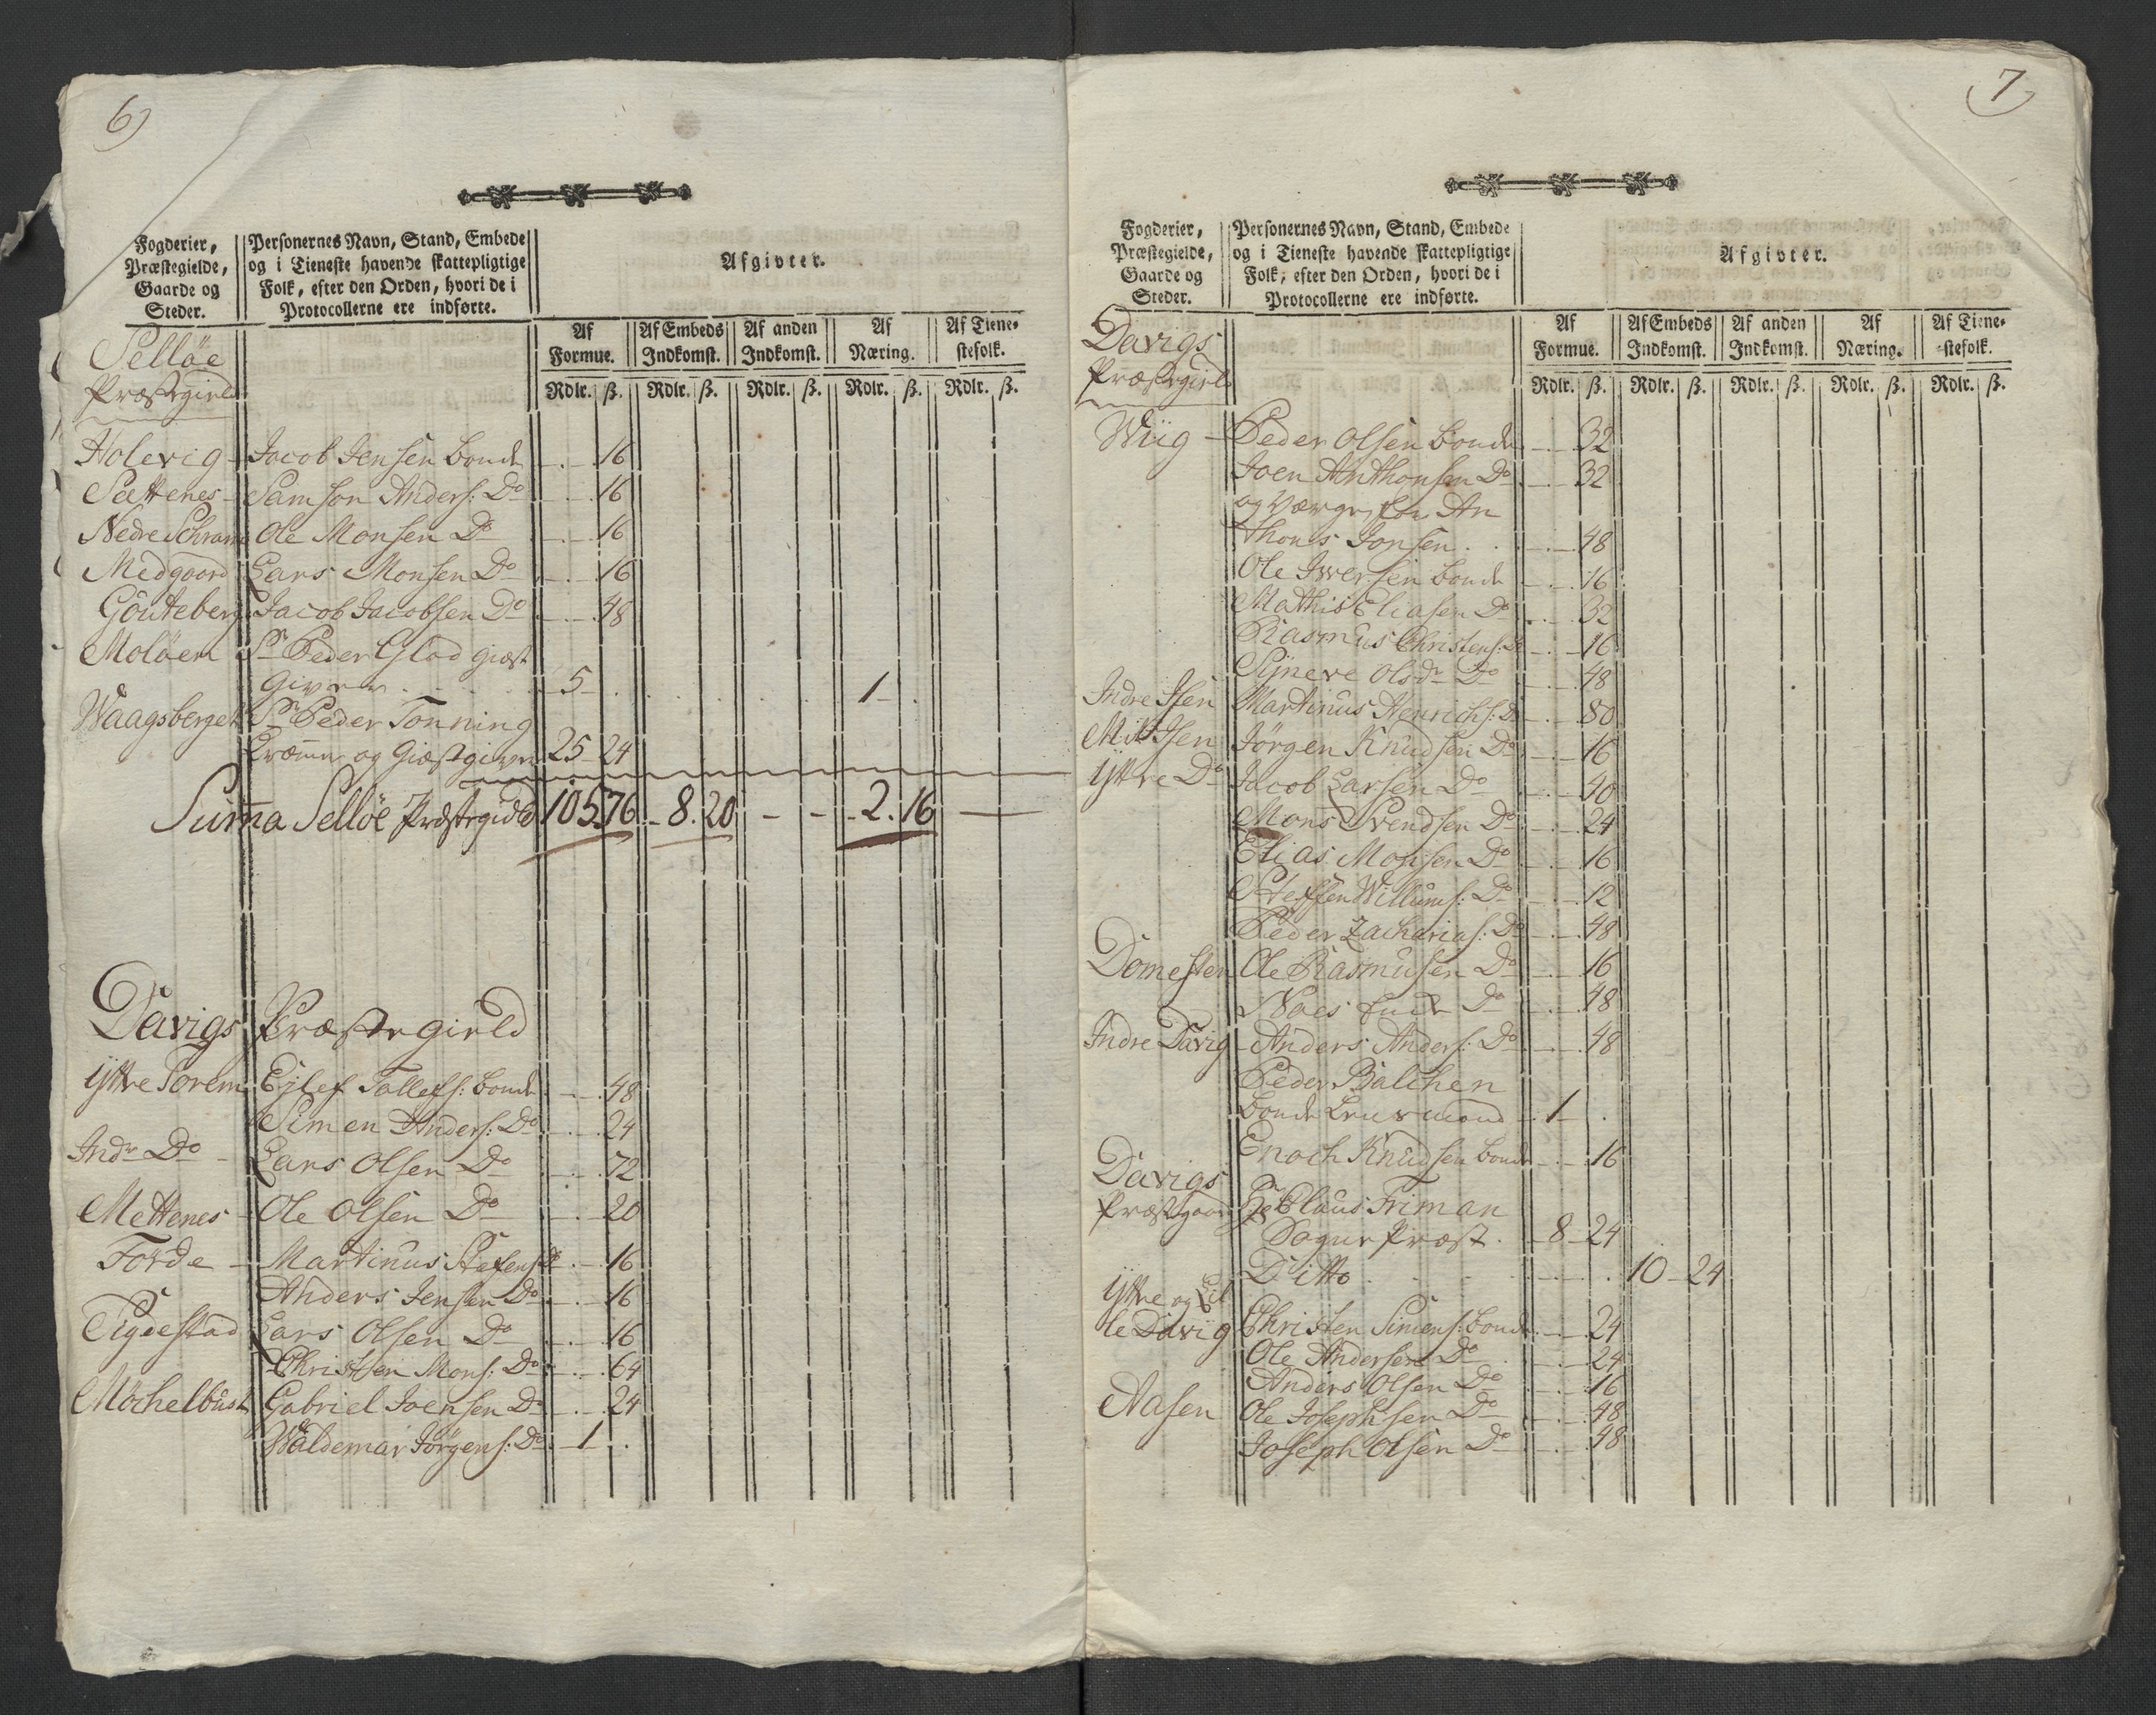 6)
Fogderier, Præstegielde, Gaarde og Steder.
Personernes Navn, Stand, Embede og i Tieneste havende skattepligtige Folk, efter den Orden, hvori de i Protocollerne ere indførte.
Afgivter.
Af Formue. Af Embeds Indkomst. Af anden Indkomst. Af Næring. Af Tienestefolk.
Rdlr. ß. Rdlr. ß. Rdlr. ß. Rdlr. ß. Rdlr. ß.
Selløe
Præstegield
Holevig - Jacob Jensen bonde 16
Sættenes - Samson Anders: Do 16
Nedre Schram Ole Monsen Do 16
Medgaard Lars Monsen Do 16
Göuteberg Jacob Jacobsen Do 48
Moløen Sr Peder Eslad giæst
giver 5 - 1 -
Waagsberget Sr Peder Tonning
Kræmer og Giæstgiver 25 24
Suma Selløe Præstegield 105. 76 - 8. 20 - - - 2. 16 -
Davigs Præstegield
Yttre Torem Ejlef Tollefs: bonde 48
Simen Anders: Do 24
Indr Do - Lars Olsen Do 72
Mettenes - Ole Olsen Do 20
Førde - Martinus Stefens: Do 16
Anders Jensen Do 16
Rigdestad Lars Olsen Do 16
Christen Mons: Do 64
Mochelbust Gabriel Joensen Do 24
Waldemar Jörgens: Do 1 -
7
Fogderier, Præstegielde, Gaarde og Steder.
Personernes Navn, Stand, Embede og i Tieneste havende skattepligtige Folk, efter den Orden, hvori de i Protocollerne ere indførte.
Afgivter.
Af Formue. Af Embeds Indkomst. Af anden Indkomst. Af Næring. Af Tienestefolk.
Rdlr. ß. Rdlr. ß. Rdlr. ß. Rdlr. ß. Rdlr. ß.
Davigs
Præstegield
Wiig - Peder Olsen bonde 32
Joen Anthonsen Do 32
og Værge for An
thons Jonsen 48
Ole Iversen bonde 16
Mathis Eliasen Do 32
Rasmus Christens: Do 16
Syneve Olsdr Do 48
Indre Isen Martinus Henrichs: Do 80
Mit Isen Jörgen Knudsen Do 16
Yttre Do Jacob Larsen Do 40
Mons Svendsen Do 24
Elias Monsen Do 16
Steffen Willums: Do 12
Peder Zacharias: Do 48
Domesten Ole Rasmusen Do 16
Noes Do 48
Indre Davig - Anders Anders: Do 48
Peder Balchen
bonde Lensmand 1 -
Enoch Knudsen bonde 16
Davigs
Præstgaard Hr Claus Friman
Sogne Præst 8 24
Ditto 10 - 24
Yttre og Lil
le Davig Christen Simens: bonde 24
Ole Andersen Do 24
Anders Olsen Do 16
Aasen Ole Josephsen Do 48
Joseph Olsen Do 48